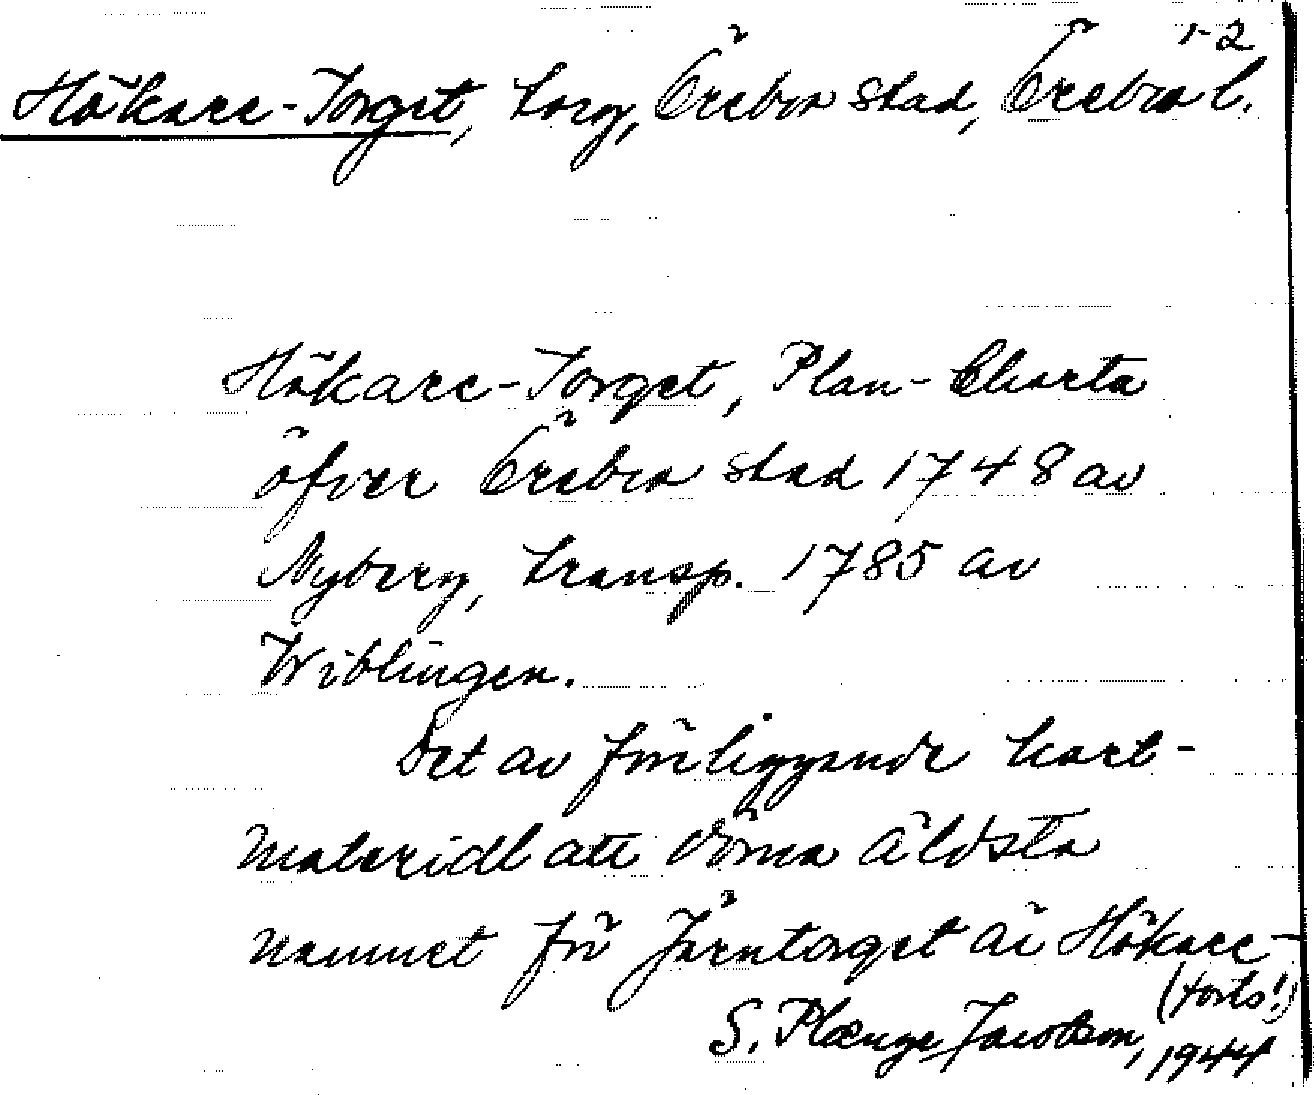 1-2
Hökare-Torget, torg, Örebro stad, Örebro l.
Hökare-Torget, Plan-Charta
öfver Örebro stad 1748 av
Nyberg, transp. 1785 av
Wiblingen.
Det av föreliggande kart-
material att döma äldsta
namnet för Järntorget är Hökare-
(forts!)
S. Plænge Jacobson, 1944